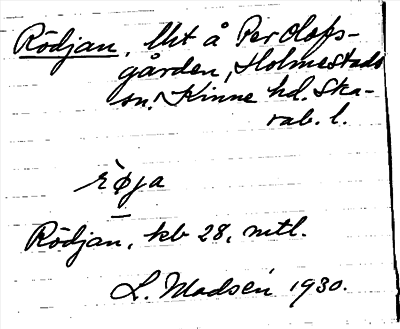 Rödjan, Utt å Per Olofs-
gården, Holmestads
sn. Kinne hd. Ska-
rab. l.
røja
Rödjan, kb 28, mtl.
L. Madsén 1930.